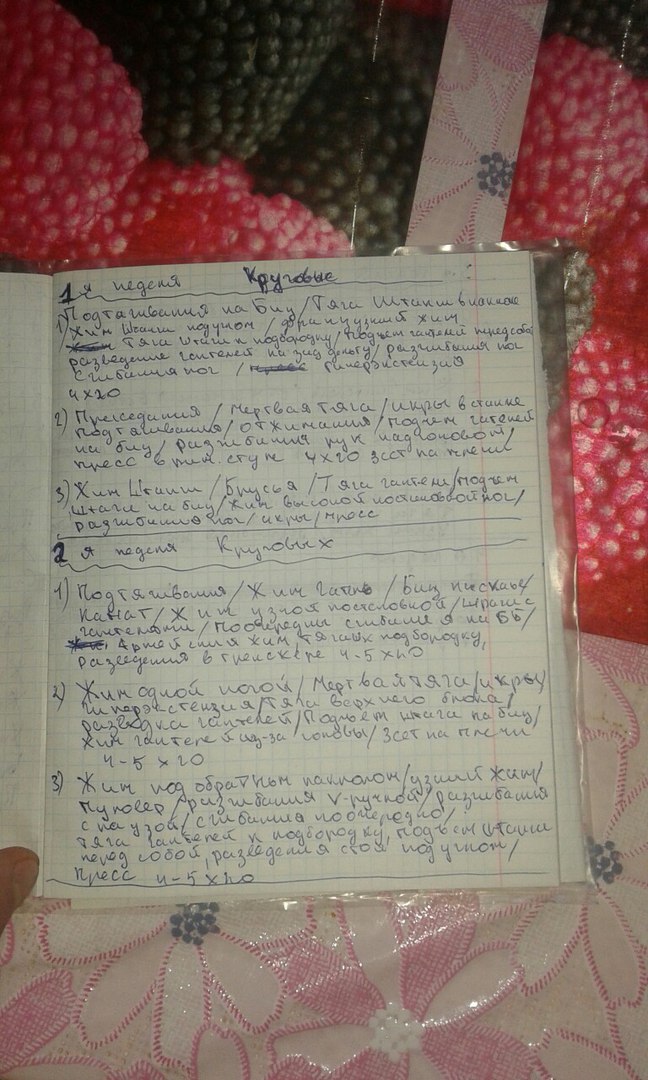 1 я неделя Круговые
1) Подтягивания на Биц / Тяга Штанги в наклоне
Жим Штанги под углом / французский жим
Тяга Штанги к подбородку / Подъем гантелей перед собой
разведение гантелей на зад дельту / разгибания ног
Сгибания ног / Гиперэкстензия
4х20
2) Приседания / Мертвая тяга / икры в станке
Подтягивания / отжимания / подъем гантелей
на биц / разгибания рук над головой /
пресс в рим. стуле 4х20 3 сет на плечи
3) Жим Штанги / Брусья / Тяга гантели / подъем
Штанги на биц / Жим высокой постановкой ног /
разгибания ног / икры / пресс
2 я неделя Круговых
1) Подтягивания / Жим гант / Биц на скамье /
Канат / Жим узкой постановкой / шраги с
гантелями / Поочередные сгибания на Бб /
Армейский жим, тяга к подбородку,
разведения в тренажере 4-5 х 20
2) Жим одной ногой / Мертвая тяга / икры /
гиперэкстензия / Тяга верхнего блока /
разводка гантелей / Подъем штанги на биц /
Жим гантелей из-за головы / 3 сет на плечи
4-5 х 20
3) Жим под обратным наклоном / узкий жим /
Пуловер / разгибания V-ручкой / разгибания
с паузой / сгибания поочередно /
тяга гантелей к подбородку, подъем штанги
перед собой, разведения стоя под углом /
Пресс 4-5 х 20